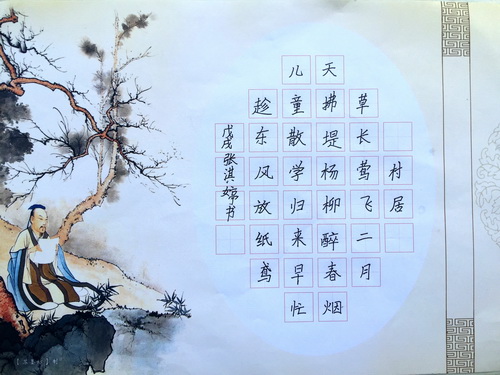 村居
草长莺飞二月
天拂堤杨柳醉春烟
儿童散学归来早忙
趁东风放纸鸢
戊戌张淇嫦书